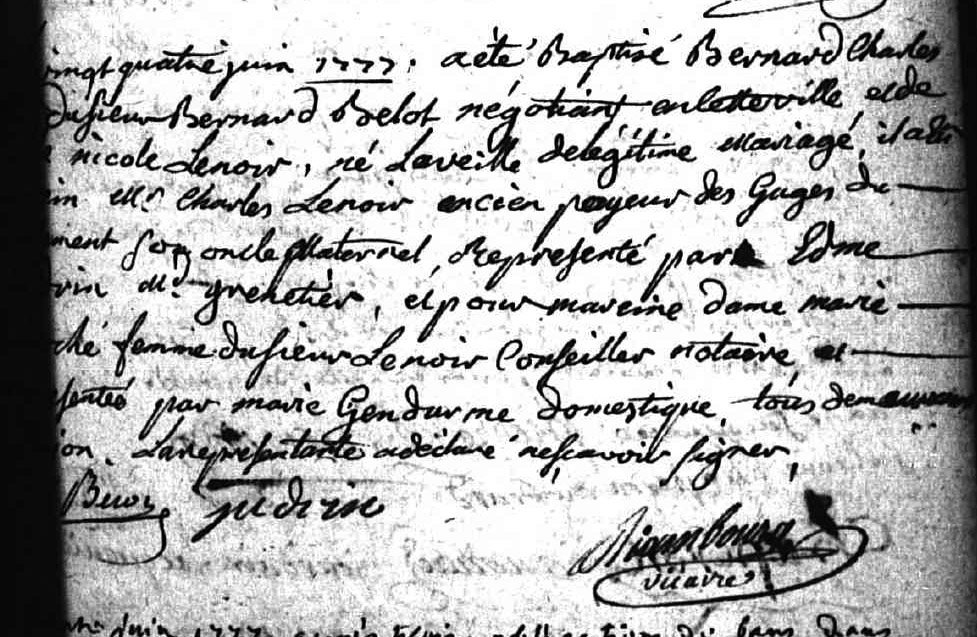 vingt quatre juin 1777. a été Baptisé Bernard Charles
du sieur Bernard Belot négotiant en cette ville et de
nicole Lenoir, né La veille de légitime mariage, il a eu
in Mr. Charles Lenoir ancien payeur des Gages du
ment son oncle Maternel, Représenté par Edme
rin Md. grenetier, et pour mareine dame marie
ché femme du sieur Lenoir Conseiller notaire, et
sentés par marie Gendarme domestique, tous demeurans
ion. La représentante a déclaré ne scavoir signer,
judrin
vicaire
juin 1777